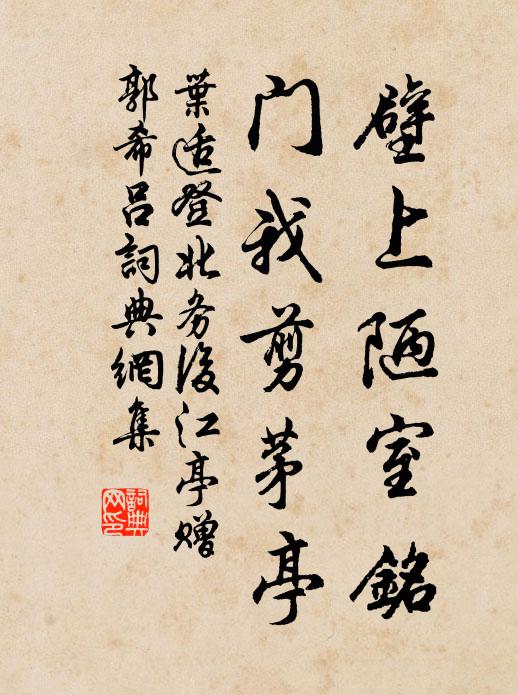 壁上陋室銘
門我剪茅亭
葉适登北务後江亭贈
郭希呂詞典網集
詞典
网印